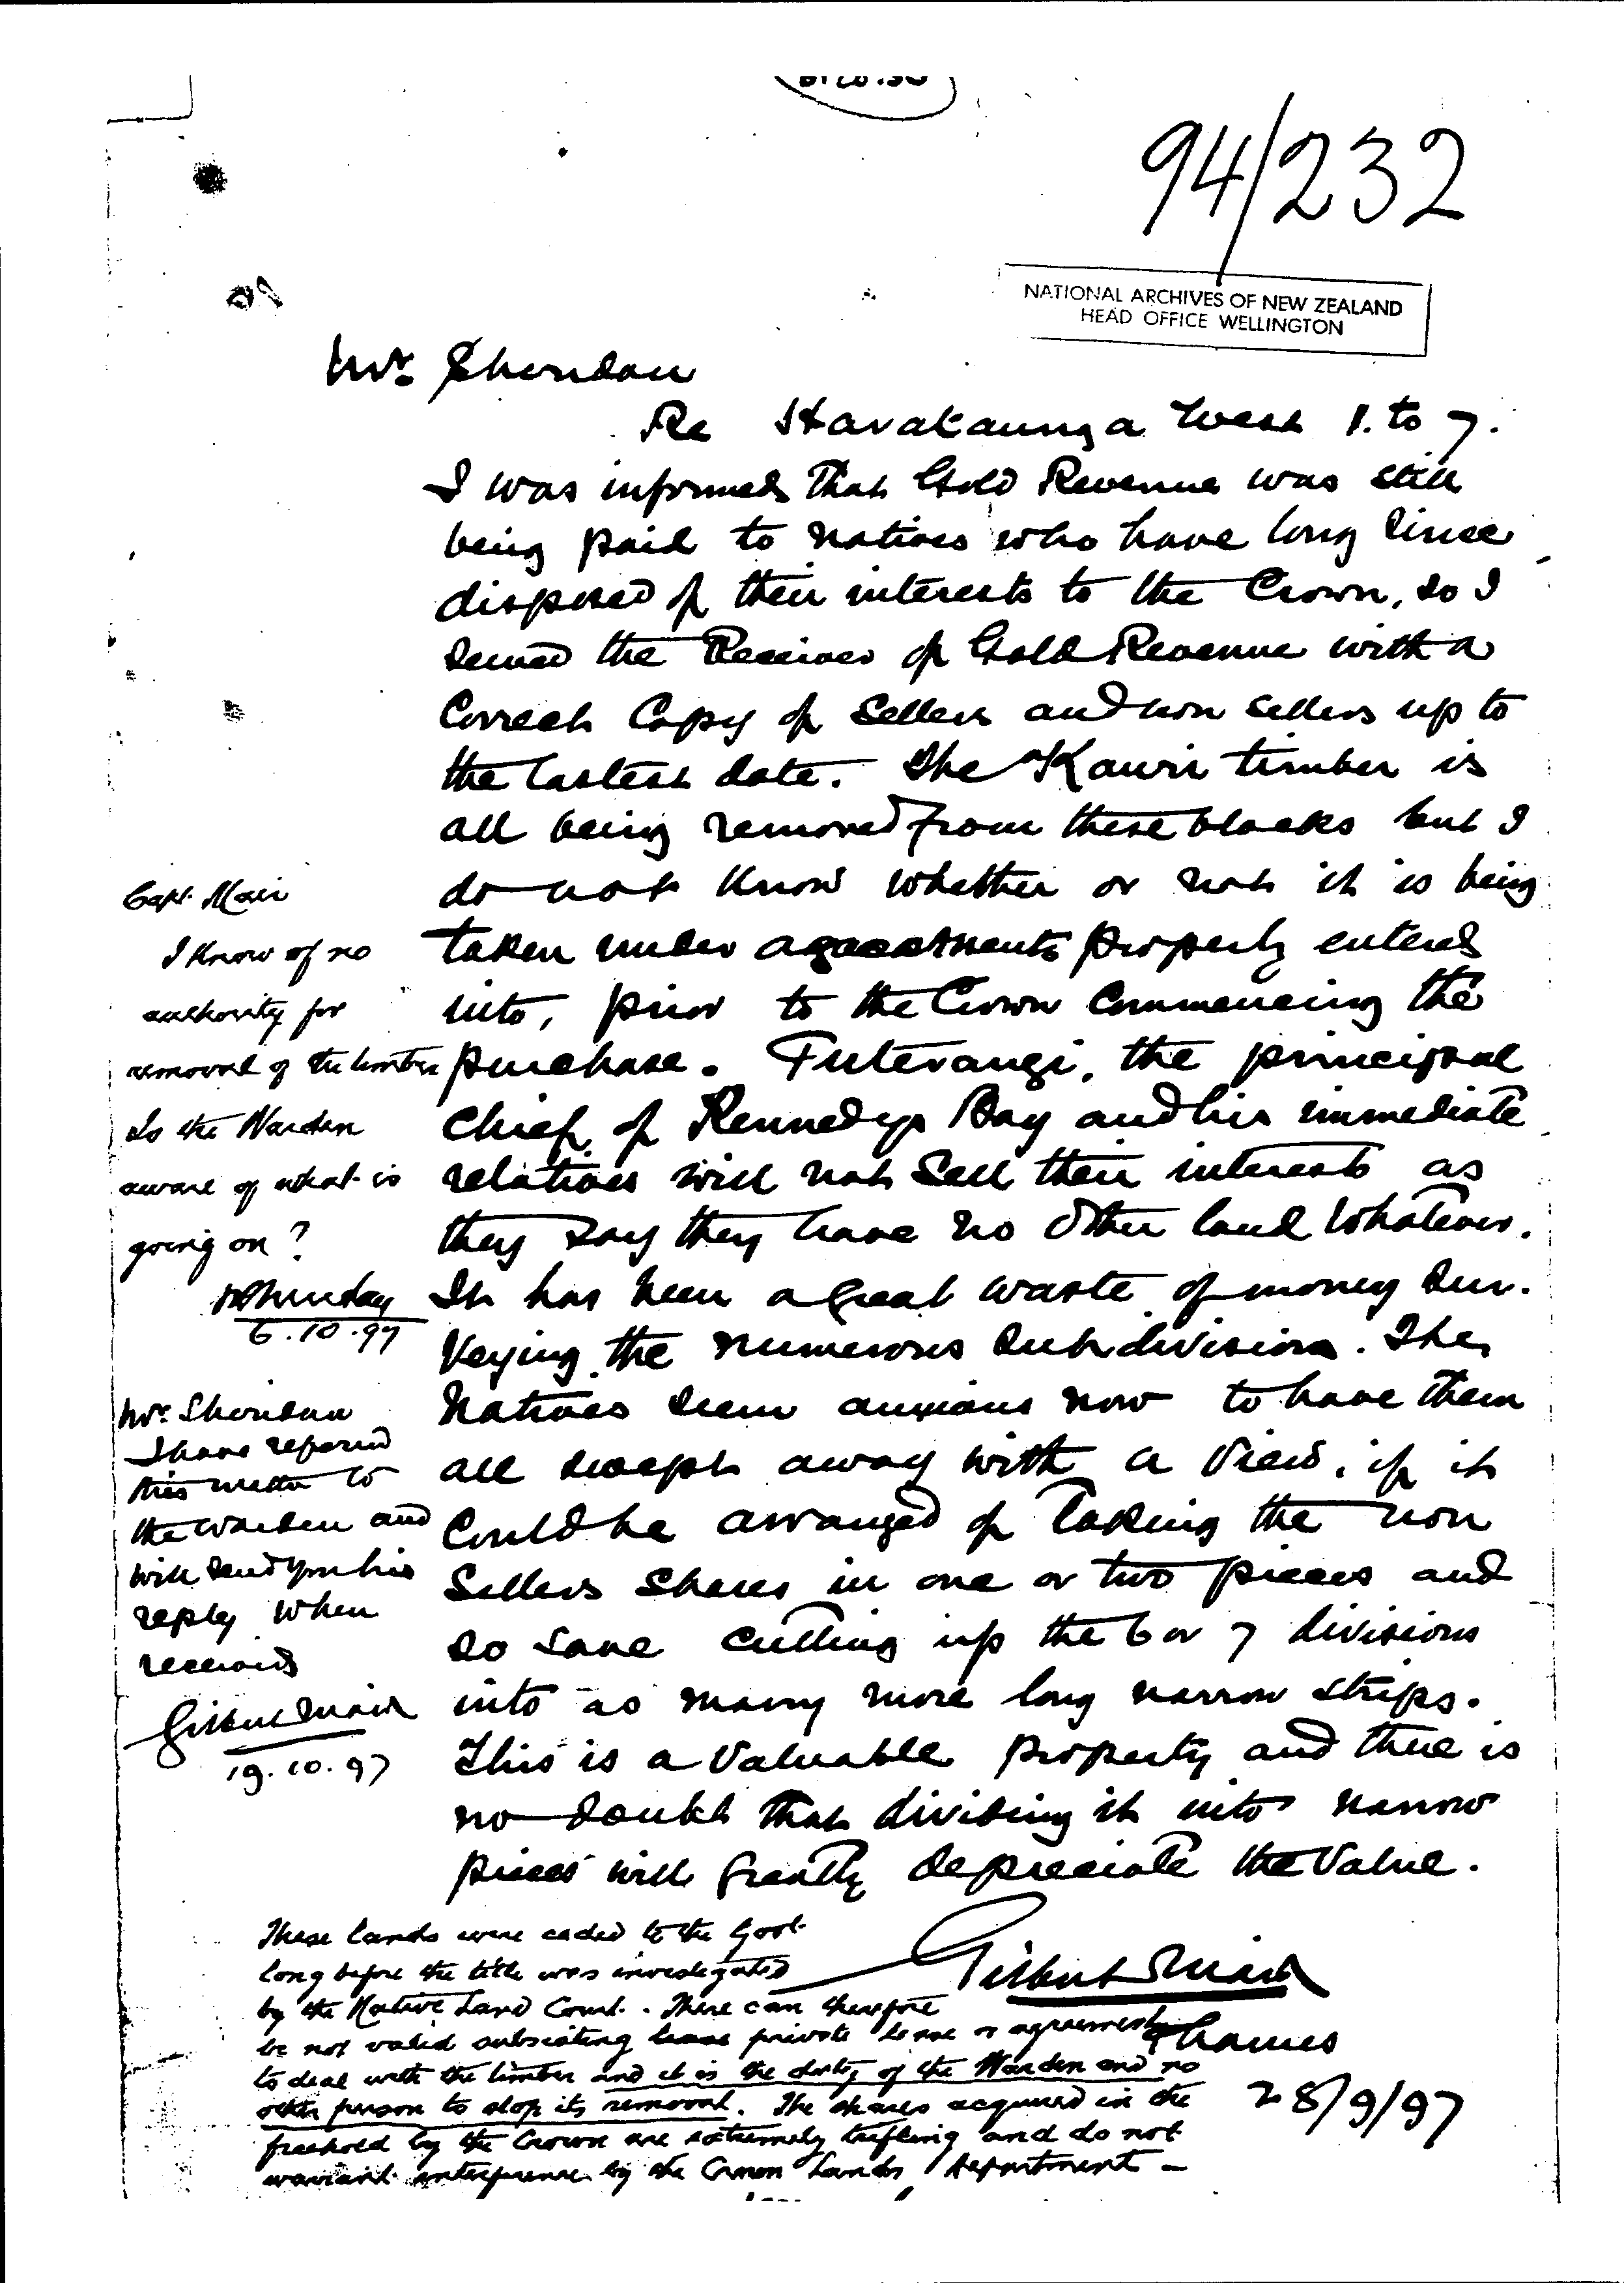 94/232
NATIONAL ARCHIVES OF NEW ZEALAND
HEAD OFFICE WELLINGTON
Mr. Sheridan
Re Harataunga West 1. to 7.
I was informed that Gold Revenue was still
being paid to natives who have long since
disposed of their interests to the Crown, so I
served the Receiver of Gold Revenue with a
Correct Copy of Sellers and non sellers up to
the lastest date. The Kauri timber is
all being removed from these blocks but I
do not know whether or not it is being
taken under agreements properly entered
into, prior to the Crown Commencing the
purchase. Puterangi, the principal
Chief of Kennedys Bay and his immediate
relatives will not Sell their interests as
they say they have no other land whatever.
It has been a great waste of money sur-
veying the numerous subdivisions. The
Natives seem anxious now to have them
all swept away with a View, if it
Could be arranged of taking the non
Sellers shares in one or two pieces and
so save cutting up the 6 or 7 divisions
into as many more long narrow strips.
This is a Valuable property and there is
no doubt that dividing it into narrow
pieces will greatly depreciate the Value.
Gilbert Mair
Thames
28/9/97
Capt. Mair
I know of no
authority for
removal of the timber
Is the Warden
aware of what is
going on?
P Sheridan
6.10.97
Mr. Sheridan
I have referred
this matter to
the Warden and
will send you his
reply when
received
Gilbert Mair
19.10.97
These lands were ceded to the Govt
long before the title was investigated
by the Native Land Court. There can therefore
be not valid subsisting lease private lease or agreement
to deal with the timber and it is the duty of the Warden and no
other person to stop its removal. The shares acquired in the
freehold by the Crown are extremely trifling and do not
warrant interference by the Crown Lands Department -